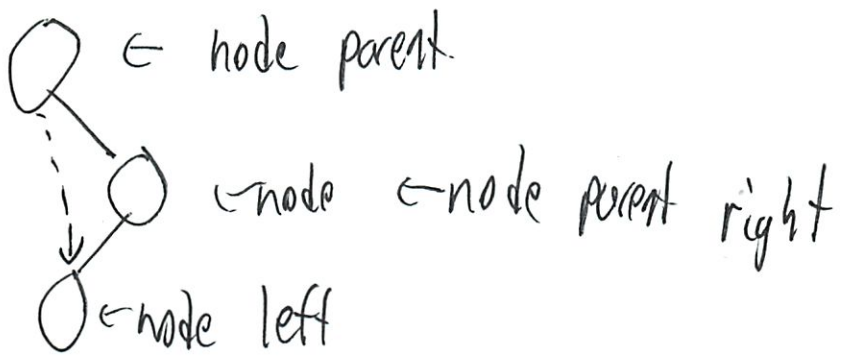 ← node parent.
←node ←node parent right
←node left